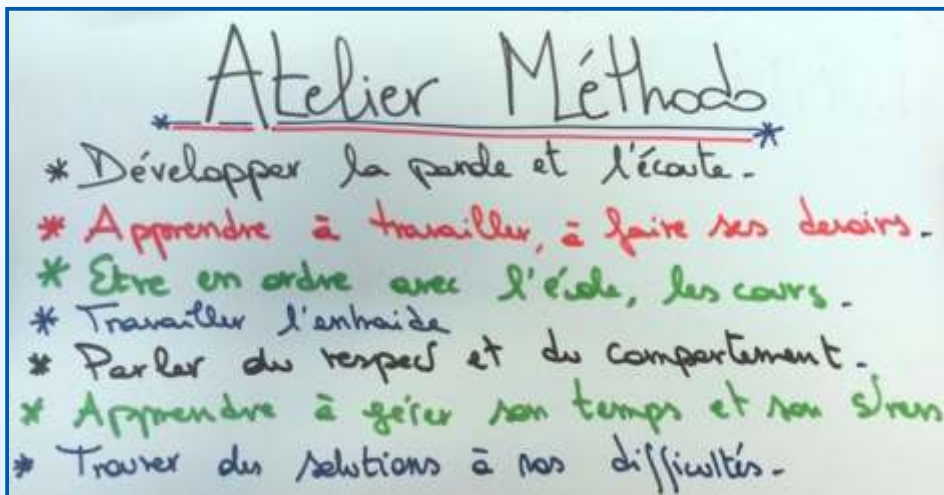 Atelier Méthodo
* Développer la parole et l'écoute.
* Apprendre à travailler, à faire ses devoirs.
* Etre en ordre avec l'école, les cours.
* Travailler l'entraide
* Parler du respect et du comportement.
* Apprendre à gérer son temps et son stress
* Trouver des solutions à nos difficultés.